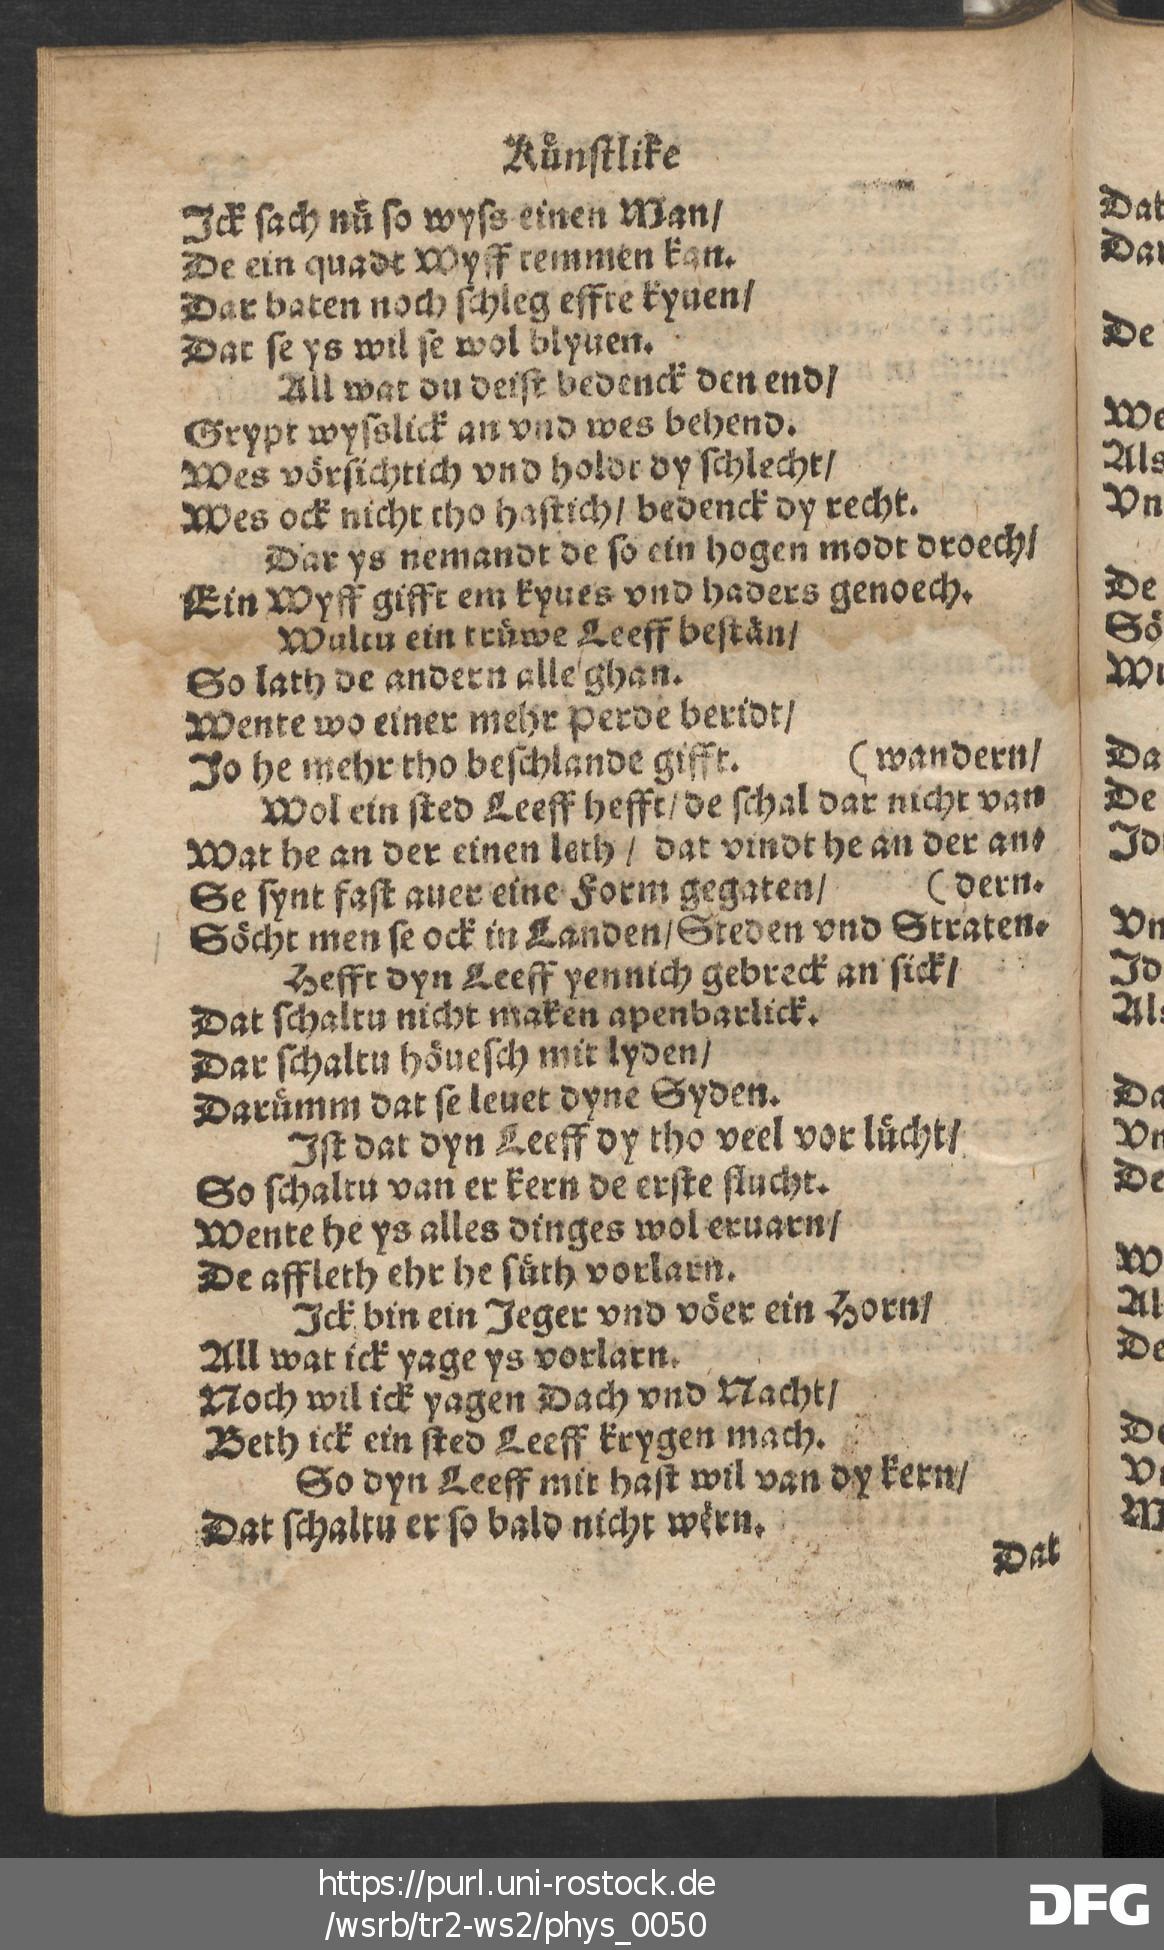 Kůnstlike
Ick sach nů so wyss einen Man/
De ein quadt Wyff temmen kan.
Dar baten noch schleg effte kyuen/
Dat se ys wil se wol blyuen.
All wat du deist bedenck den end/
Grypt wysslick an vnd wes behend.
Wes vörsichtich vnd holdt dy schlecht/
Wes ock nicht tho hastich/ bedenck dy recht.
Dar ys nemandt de so ein hogen modt droech/
Ein Wyff gifft em kyues vnd haders genoech.
Wultu ein trůwe Leeff bestän/
So lath de andern alle ghan.
Wente wo einer mehr Perde beridt/
Jo he mehr tho beschlande gifft. (wandern/
Wol ein sted Leeff hefft/ de schal dar nicht van
Wat he an der einen leth / dat vindt he an der an-
Se synt fast auer eine Form gegaten/ (dern.
Söcht men se ock in Landen/ Steden vnd Straten.
Hefft dyn Leeff yennich gebreck an sick/
Dat schaltu nicht maken apenbarlick.
Dar schaltu höuesch mit lyden/
Darůmm dat se leuet dyne Syden.
Ist dat dyn Leeff dy tho veel vor lůcht/
So schaltu van er kern de erste flucht.
Wente he ys alles dinges wol eruarn/
De affleth ehr he sůth vorlarn.
Ick bin ein Jeger vnd vöer ein Horn/
All wat ick yage ys vorlarn.
Noch wil ick yagen Dach vnd Nacht/
Beth ick ein sted Leeff krygen mach.
So dyn Leeff mit hast wil van dy kern/
Dat schaltu er so bald nicht wern.
Dat
Dat
De
We
Als
Vn
De
Sö
Da
De
Vn
Als
Da
Vn
De
W
Al
De
https://purl.uni-rostock.de
/wsrb/tr2-ws2/phys_0050
DFG